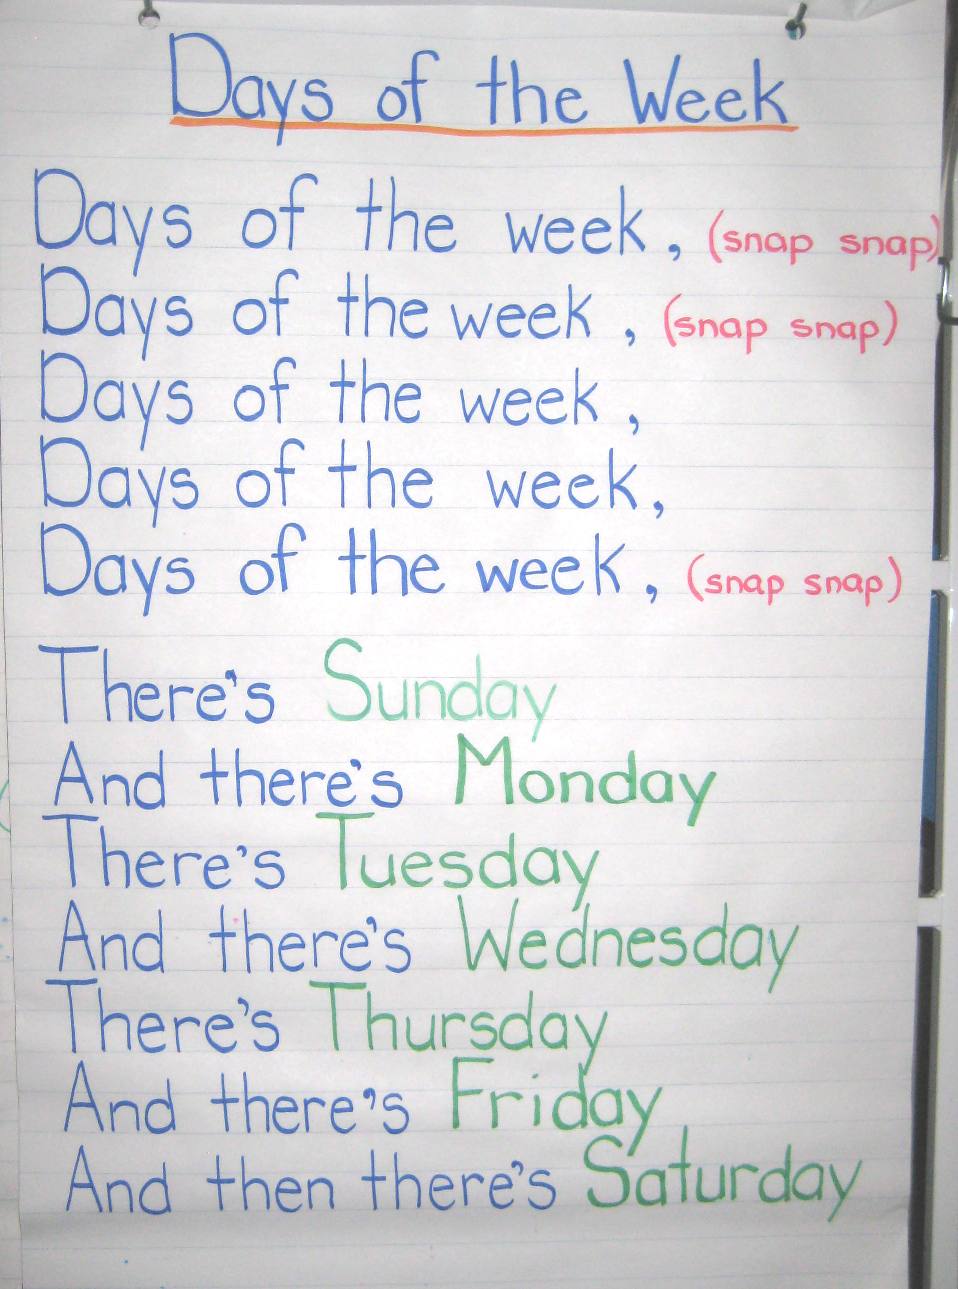 Days of the Week
Days of the week, (snap snap)
Days of the week, (snap snap)
Days of the week,
Days of the week,
Days of the week, (snap snap)
There's Sunday
And there's Monday
There's Tuesday
And there's Wednesday
There's Thursday
And there's Friday
And then there's Saturday